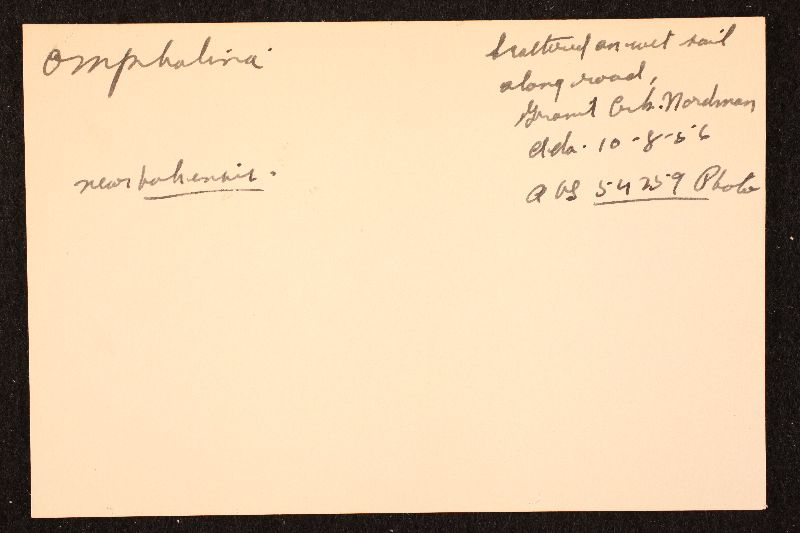 Omphalina
near bakensis.
Scattered on wet soil
along road,
Granit Crk. Nordman
Ida. 10-8-56
AHS 54259 Photo